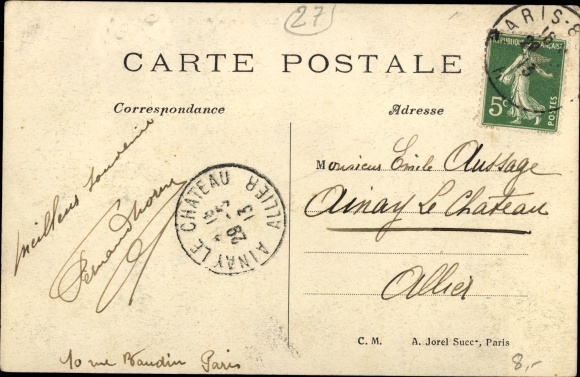 27
CARTE POSTALE
Correspondance
Adresse
PARIS-8
RÉPUBLIQUE FRANÇAISE
5c
POSTES
meilleurs souvenirs
10 rue Baudin Paris
AINAY LE CHATEAU
ALLIER
29
13
Monsieur Emile Aussage
Ainay Le Chateau
Allier
C. M. A. Jorel Succr, Paris
8,-